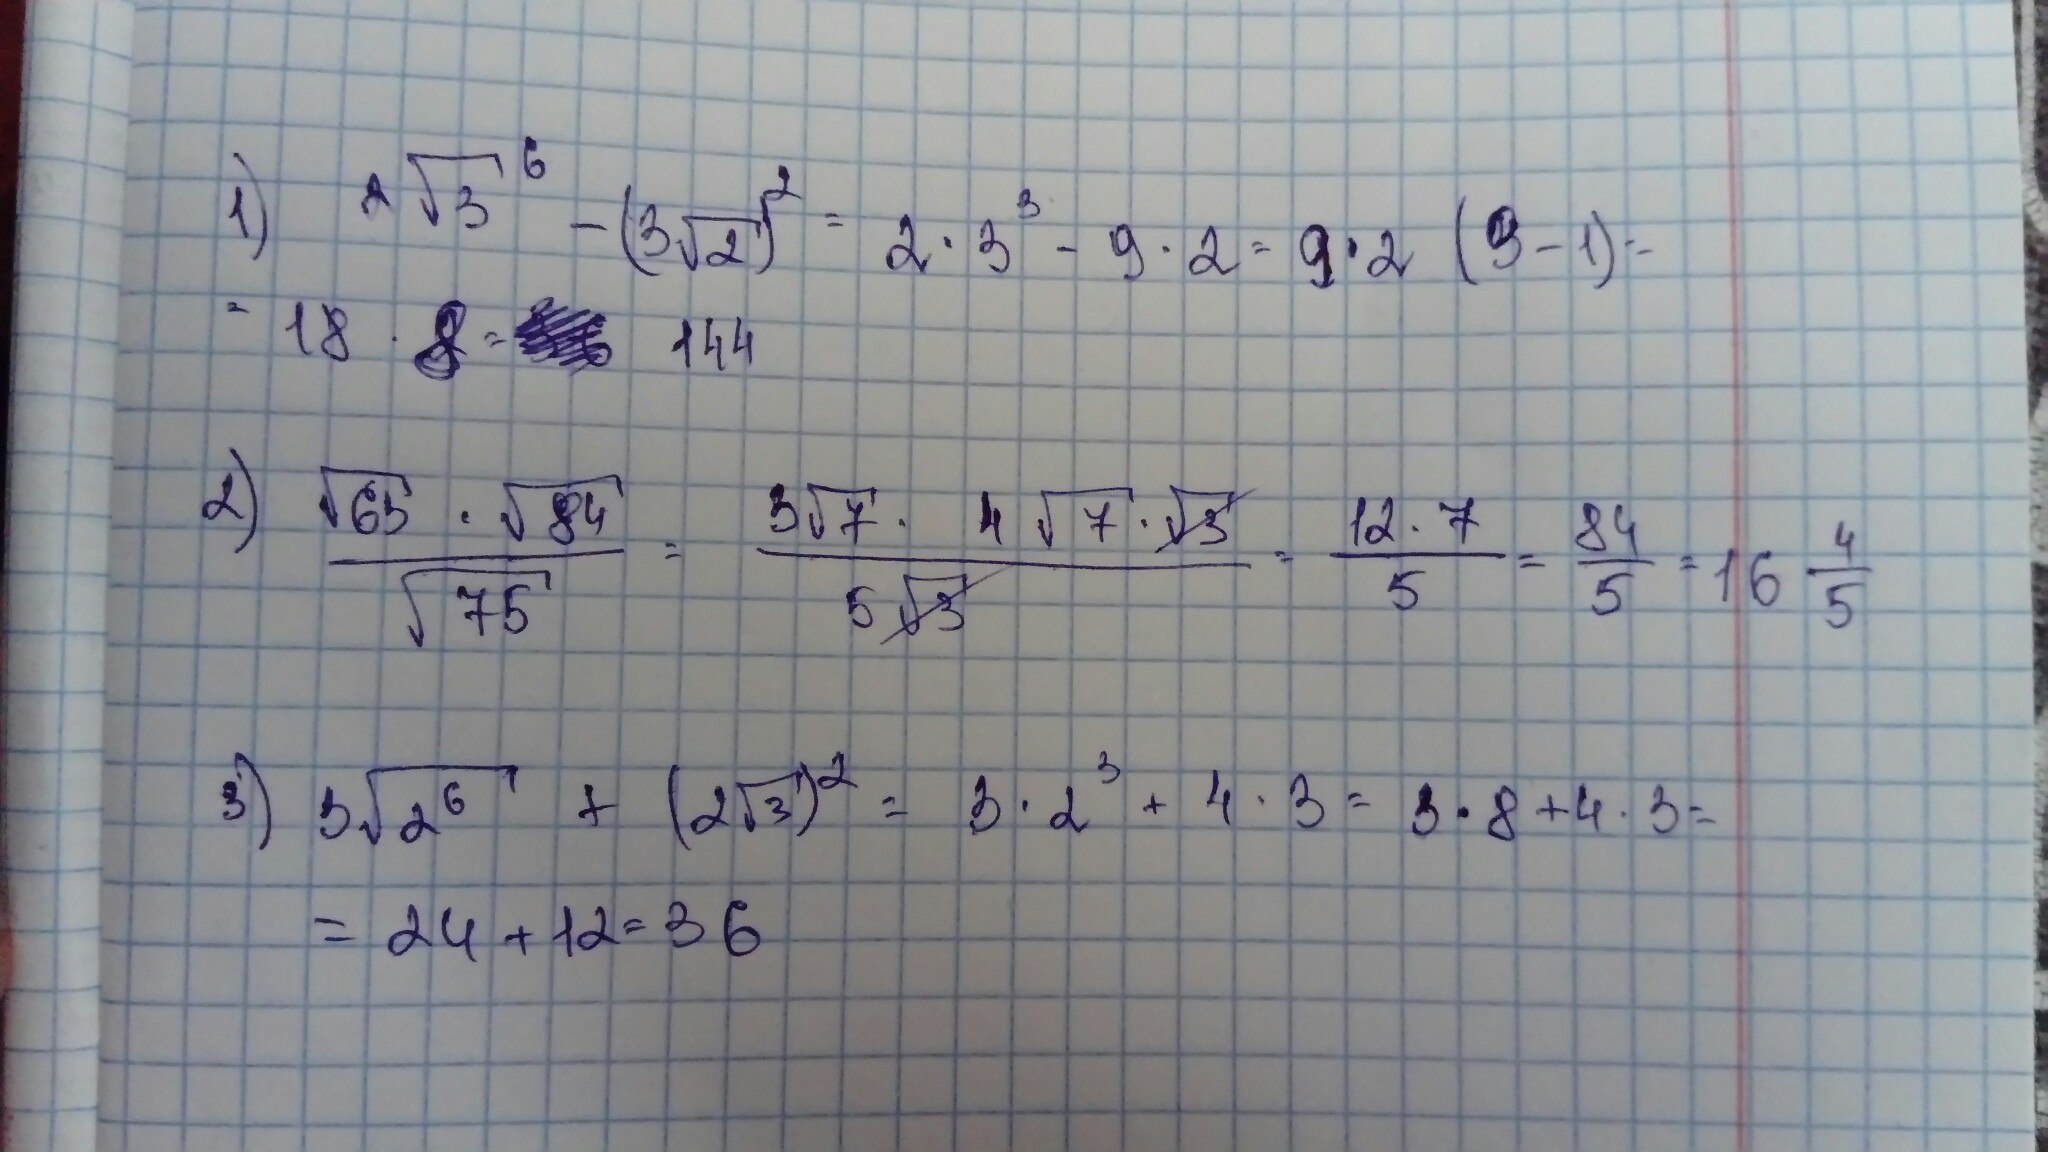 1) 2√3⁶ - (3√2)² = 2·3³ - 9·2 = 9·2 (9-1) =
= 18 · 8 = 144
2) √63 · √84 / √75 = 3√7 · 4√7·√3 / 5√3 = 12·7 / 5 = 84/5 = 16 4/5
3) 3√2⁶ + (2√3)² = 3·2³ + 4·3 = 3·8+4·3=
= 24+12=36